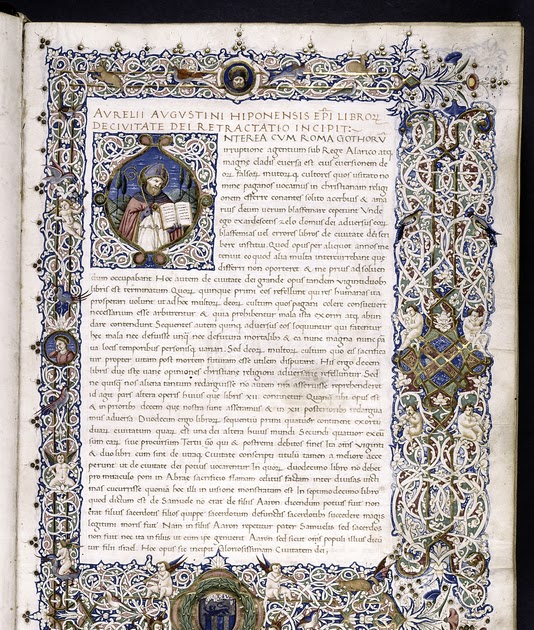 AVRELII AVGVSTINI HIPONENSIS EPI LIBROꝜ
DE CIVITATE DEI RETRACTATIO INCIPIT:
NTEREA CVM ROMA GOTHORV̄
irruptione agentium sub Rege Alarico atq;
magne cladis euersa est eius euersionem de
oꝝ falsoꝝ multoꝝq; cultores quos usitato no
mine paganos uocamus in christianam religi
onem conantes solito acerbius & ama
rius deum uerum blasfemare ceperunt Vnde
ego exardescens zelo domus dei aduersus eoꝝ
blasfemias uel errores libros de ciuitate dei scri
bere institui. Quod opus per aliquot annos me
tenuit eo quod alia multa intercurrebant que
differri non oporteret & me prius ad soluen
dum occupabant. Hoc autem de ciuitate dei grande opus tandem uigintiduob;
libris est terminatum Quoꝝ quinque primi eos refellunt qui res humanas ita
prosperari uolunt ut ad hec multoꝝ deoꝝ cultum quos pagani colere consueuerunt
necessarium esse arbitrentur & quia prohibentur mala ista exoriri atq; abun
dare contendunt Sequentes autem quinq; aduersus eos loquuntur qui fatentur
hec mala nec defuisse unq; nec defutura mortalib; & ea nunc magna nunc pa
ua locis temporibus personisq; uariari. Sed deoꝝ multoꝝ cultum quo eis sacrifica
tur propter uitam post mortem futuram esse utilem disputant. His ergo decem
libris due iste uane opiniones christiane religioni aduersarie refelluntur. Sed
ne quisq; nos aliena tantum redarguisse non autem nostra asseruisse reprehenderet
id agit pars altera operis huius que libris XII continetur
& in prioribus decem que nostra sunt asseramus & in XII posteriorib; redargua
mus aduersa. Duodecim ergo libroꝝ sequentium primi quatuor continent exortum
duarum ciuitatum quarum est una dei altera huius mundi Secundi quatuor excur
sum earum siue procursum Tertii uero qui & postremi debitos fines Ita omnes Viginti
& duo libri cum sint de utraq; Ciuitate conscripti titulum tamen a meliore acce
perunt ut de ciuitate dei potius uocarentur In quoꝝ duodecimo libro no debet
pro miraculo poni in Abrae sacrificio flamam celitus factam inter diuisas uicti
mas cucurrisse quoniam hoc illi in uisione monstratum est In septimo decimo libro
quod dictum est de Samuele no erat de filiis Aaron dicendum potius fuit non
erat filius sacerdotis filios quippe sacerdotum defunctis sacerdotib; succedere magis
legitimi moris fuit Nam in filiis Aaron reperitur pater Samuelis sed sacerdos
non fuit nec ita in filiis ut eum ipse genuerit Aaron sed sicut omnes populi illius dicu
tur filii israel. Hoc opus sic incipit Gloriosissimam Ciuitatem dei;